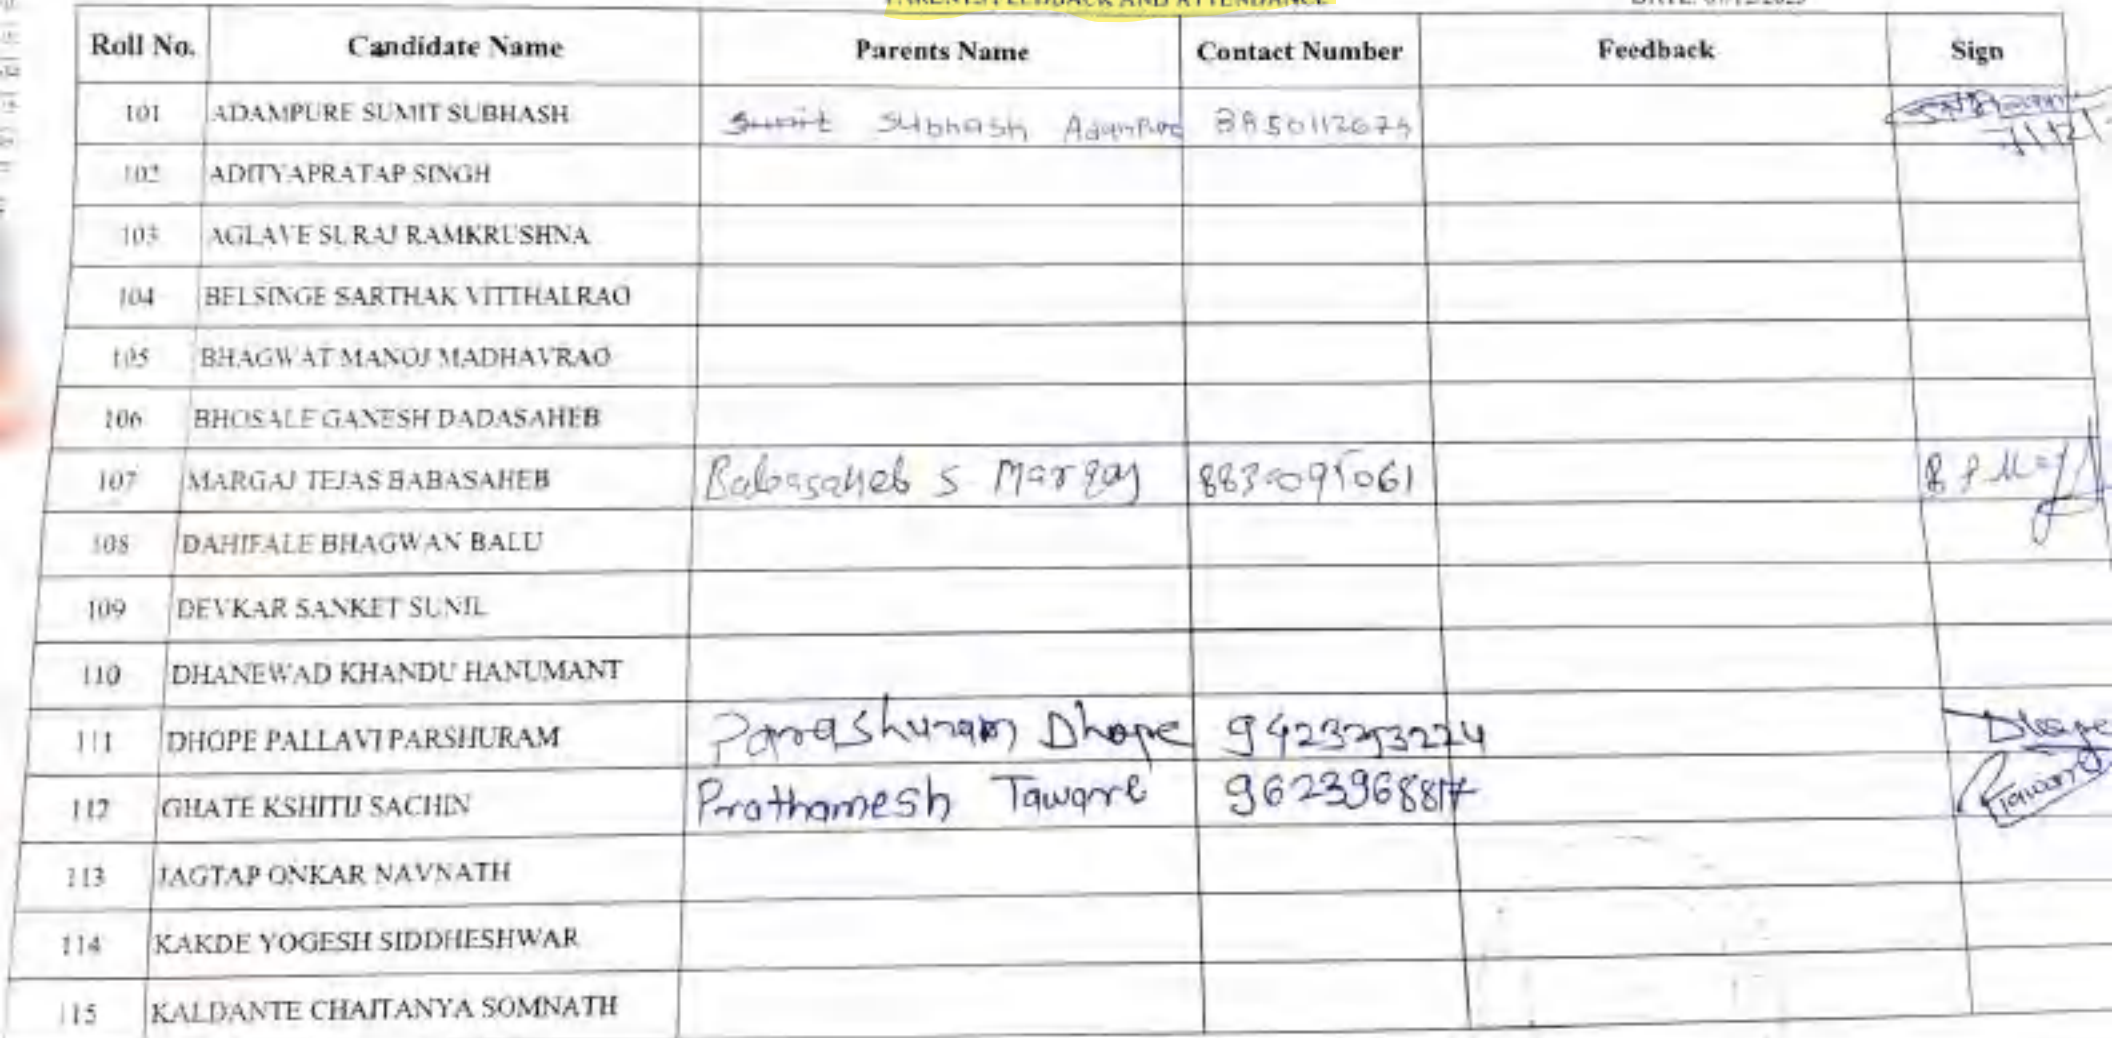 PARENTS FEEDBACK AND ATTENDANCE
Roll No. Candidate Name Parents Name Contact Number Feedback Sign
101 ADAMPURE SUMIT SUBHASH Sumit Subhash
102 ADITYAPRATAP SINGH
103 AGLAVE SURAJ RAMKRUSHNA
104 BELSINGE SARTHAK VITTHALRAO
105 BHAGWAT MANOJ MADHAVRAO
106 BHOSALE GANESH DADASAHEB
107 MARGAJ TEJAS BABASAHEB Babasaheb S Margaj
108 DAHIFALE BHAGWAN BALU
109 DEVKAR SANKET SUNIL
110 DHANEWAD KHANDU HANUMANT
111 DHOPE PALLAVI PARSHURAM Parashuram Dhope Dhope
112 GHATE KSHITIJ SACHIN Prathamesh Taware 9623968817
113 JAGTAP ONKAR NAVNATH
114 KAKDE YOGESH SIDDHESHWAR
115 KALDANTE CHAITANYA SOMNATH